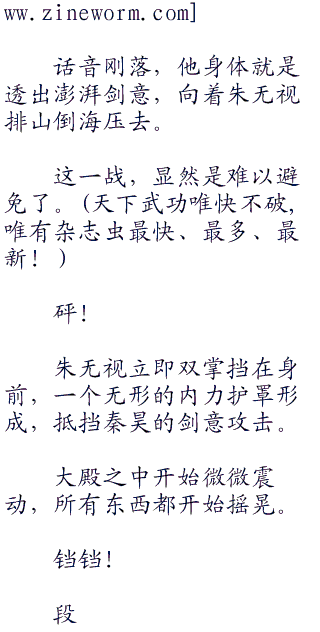 ww.zineworm.com]
话音刚落，他身体就是
透出澎湃剑意，向着朱无视
排山倒海压去。
这一战，显然是难以避
免了。(天下武功唯快不破,
唯有杂志虫最快、最多、最
新！)
砰！
朱无视立即双掌挡在身
前，一个无形的内力护罩形
成，抵挡秦昊的剑意攻击。
大殿之中开始微微震
动，所有东西都开始摇晃。
铛铛！
段